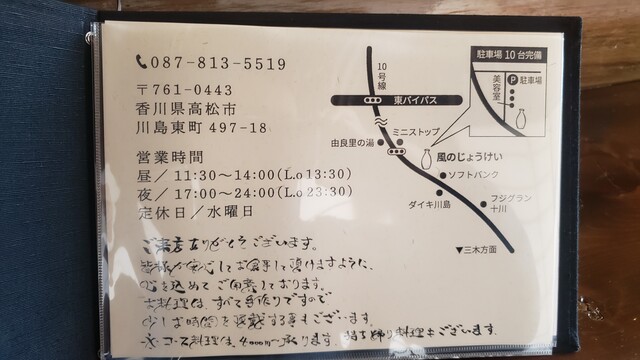 087-813-5519
〒761-0443
香川県高松市
川島東町 497-18
営業時間
昼/11:30〜14:00(L.o 13:30)
夜/17:00〜24:00(L.o 23:30)
定休日/水曜日
ご来店ありがとうございます。
皆様が安心してお食事して頂けますように、
心を込めてご用意しております。
お料理は、すべて手作りですので
少しお時間を頂戴する事もございます。
コース料理は、4000円〜承ります。 持ち帰り料理もございます。
10号線
東バイパス
駐車場 10 台完備
美容室
P 駐車場
ミニストップ
由良里の湯
風のじょうけい
ソフトバンク
ダイキ川島
フジグラン
十川
▼三木方面